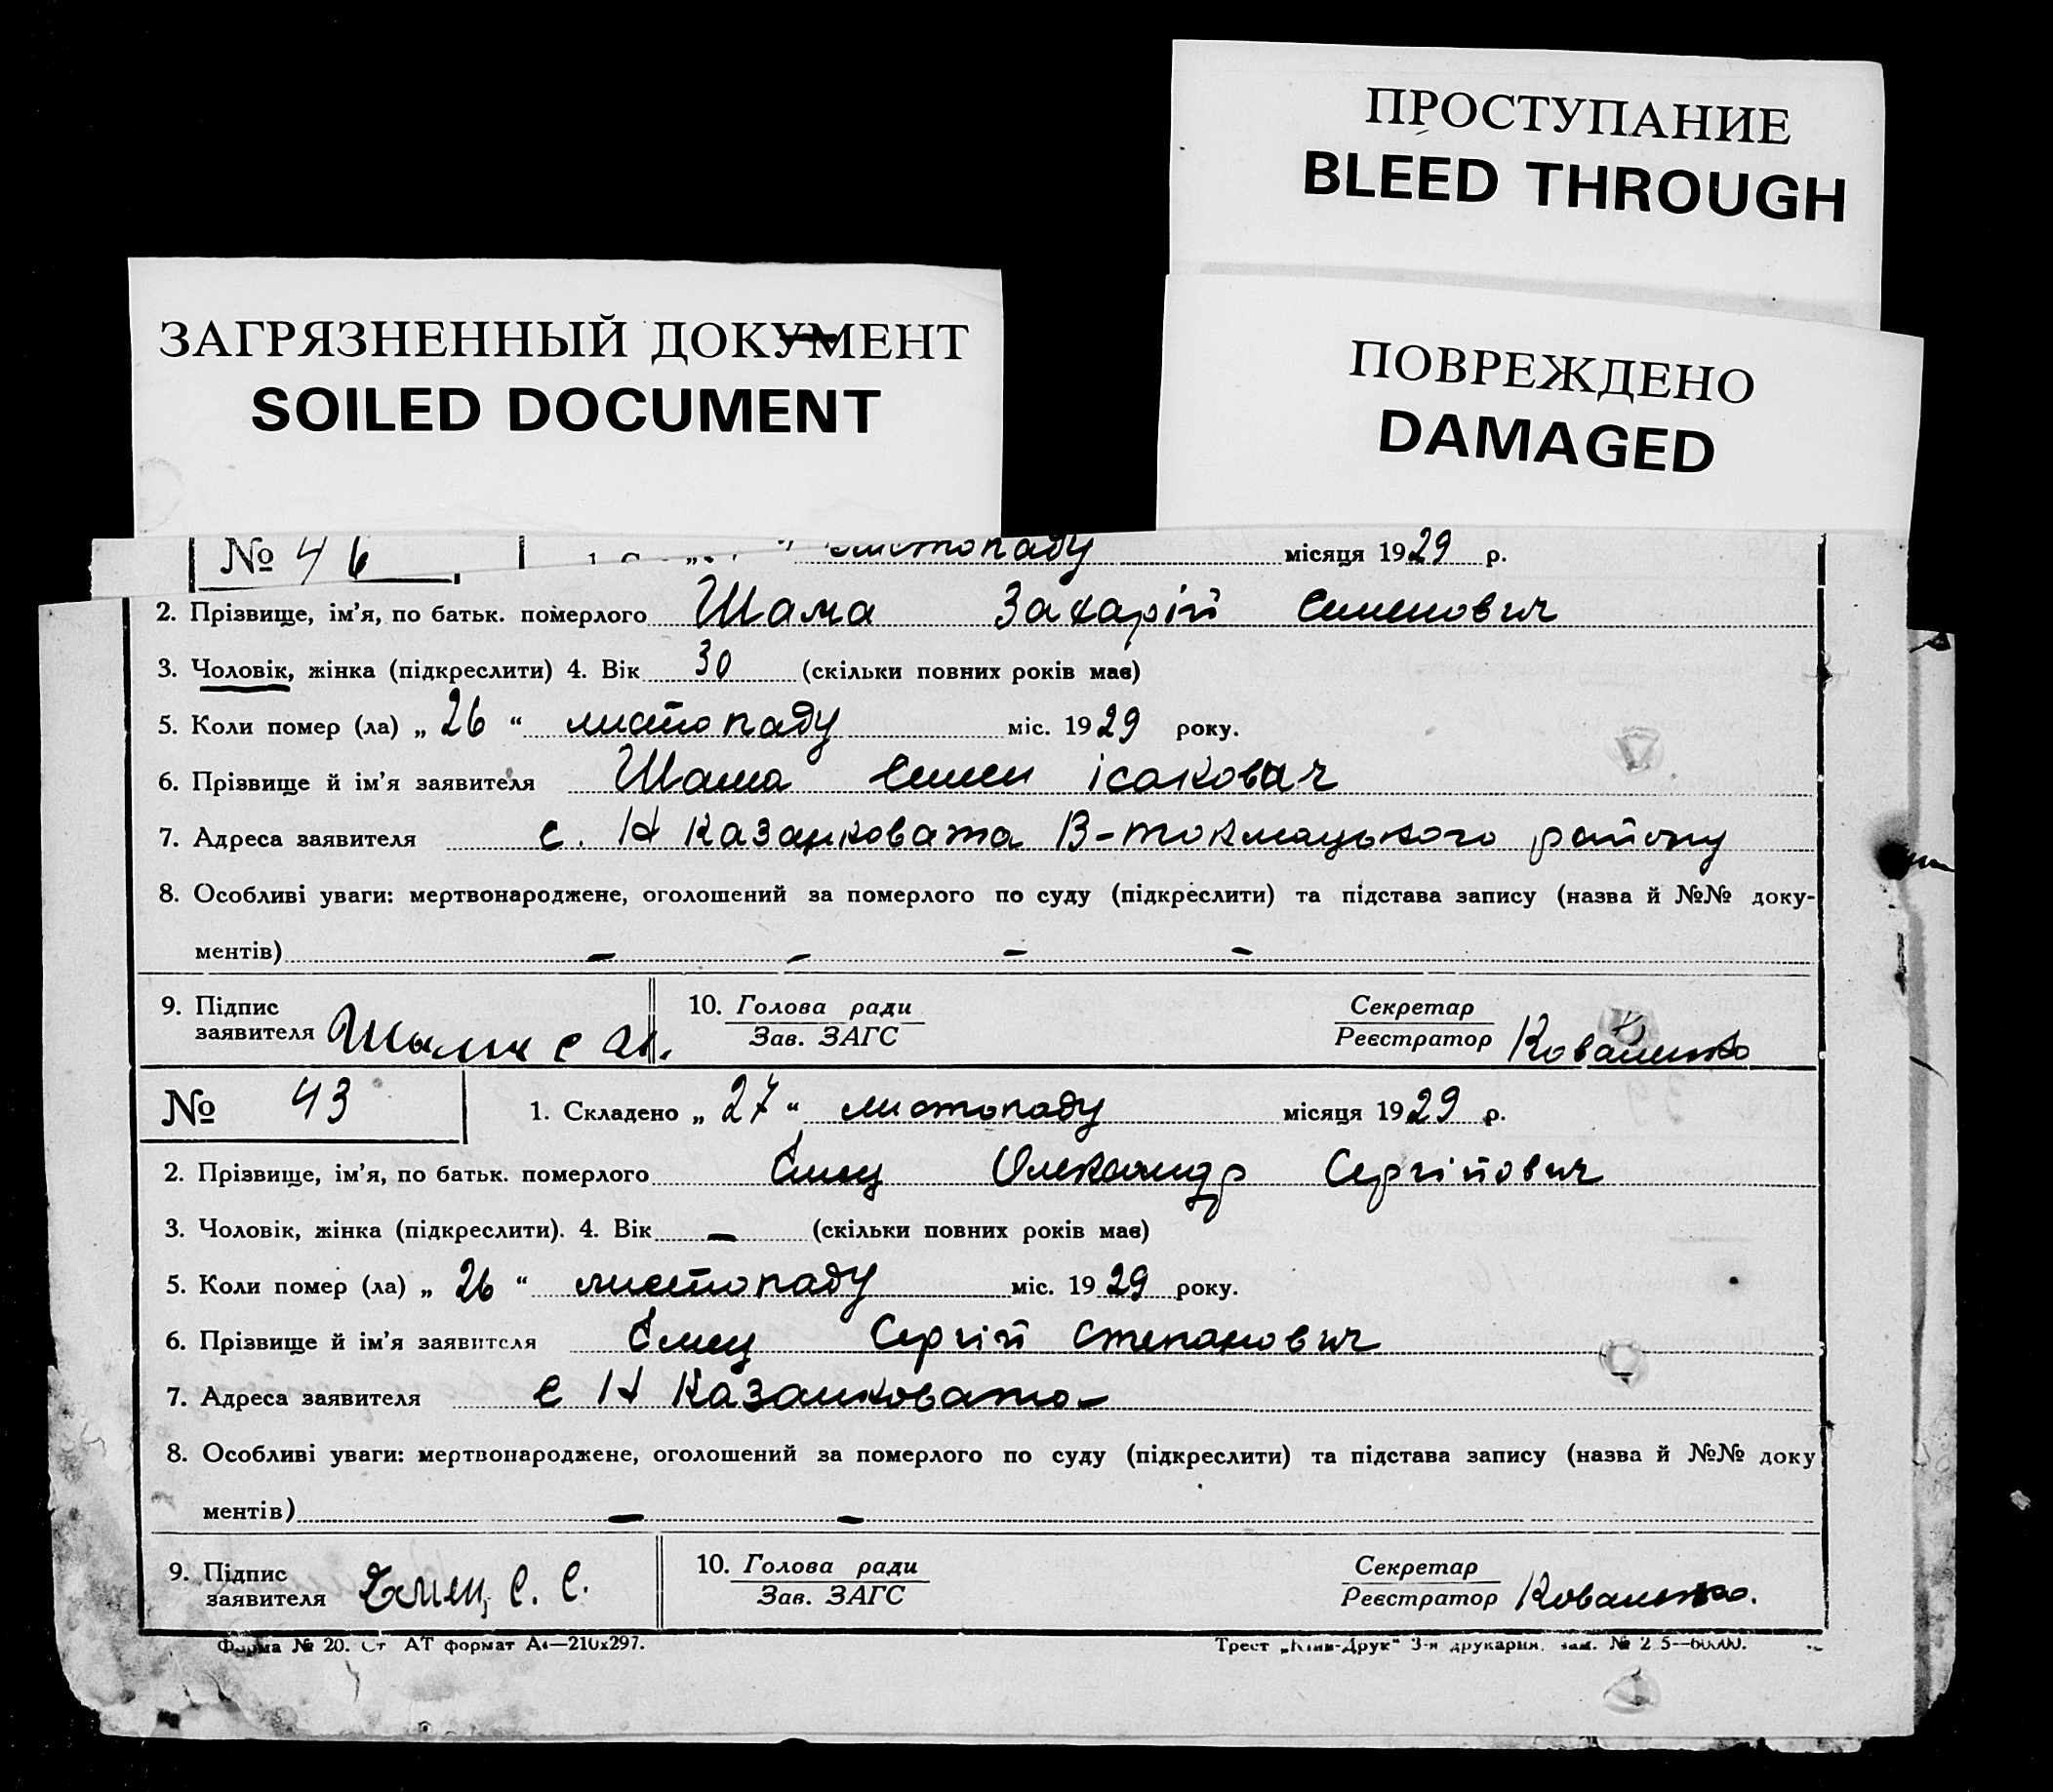 ПРОСТУПАНИЕ
BLEED THROUGH
ЗАГРЯЗНЕННЫЙ ДОКУМЕНТ
SOILED DOCUMENT
ПОВРЕЖДЕНО
DAMAGED
№ 46
листопаду місяця 1929 р.
2. Прізвище, ім'я, по батьк. померлого Шама Захарій Семенович
3. Чоловік, жінка (підкреслити) 4. Вік 30 (скільки повних років має)
5. Коли помер (ла) „ 26 “ листопаду міс. 1929 року.
6. Прізвище й ім'я заявителя Шама Семен Ісакович
7. Адреса заявителя с. Н Казанковата В-токмацького району
8. Особливі уваги: мертвонароджене, оголошений за померлого по суду (підкреслити) та підстава запису (назва й №№ доку-
ментів) – – – –
9. Підпис заявителя
10. Голова ради
Зав. ЗАГС
Секретар
Реєстратор Коваленко
№ 43
1. Складено „ 27 “ листопаду місяця 1929 р.
2. Прізвище, ім'я, по батьк. померлого Ємец Олександр Сергійович
3. Чоловік, жінка (підкреслити). 4. Вік – (скільки повних років має)
5. Коли помер (ла) „ 26 “ листопаду міс. 1929 року.
6. Прізвище й ім'я заявителя Ємец Сергій Степанович
7. Адреса заявителя с Н Казанковато-
8. Особливі уваги: мертвонароджене, оголошений за померлого по суду (підкреслити) та підстава запису (назва й №№ доку
ментів) – –
9. Підпис заявителя Емец С. С.
10. Голова ради
Зав. ЗАГС
Секретар
Реєстратор Коваленко.
Форма № 20. Ст АТ формат А4—210х297.
Трест „Київ-Друк“ 3-я друкарня. зам. №